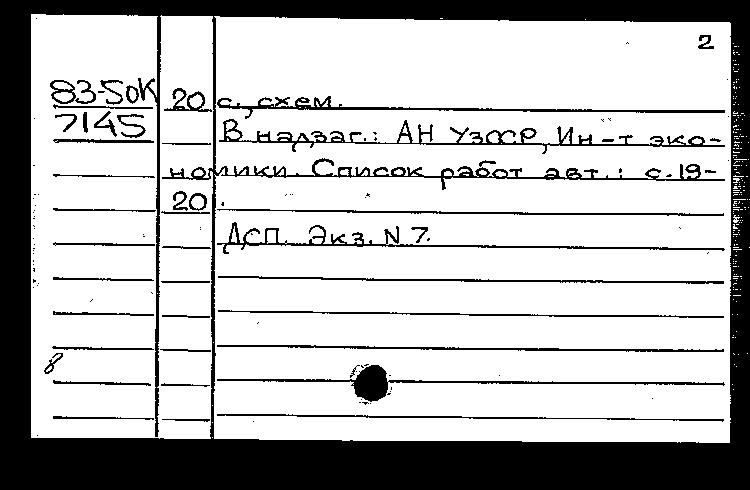 2
83-5ок 20 с., схем.
7145 В надзаг.: АН УзССР, Ин-т эко-
номики. Список работ авт.: с. 19-
20.
ДСП. Экз. N 7.
8